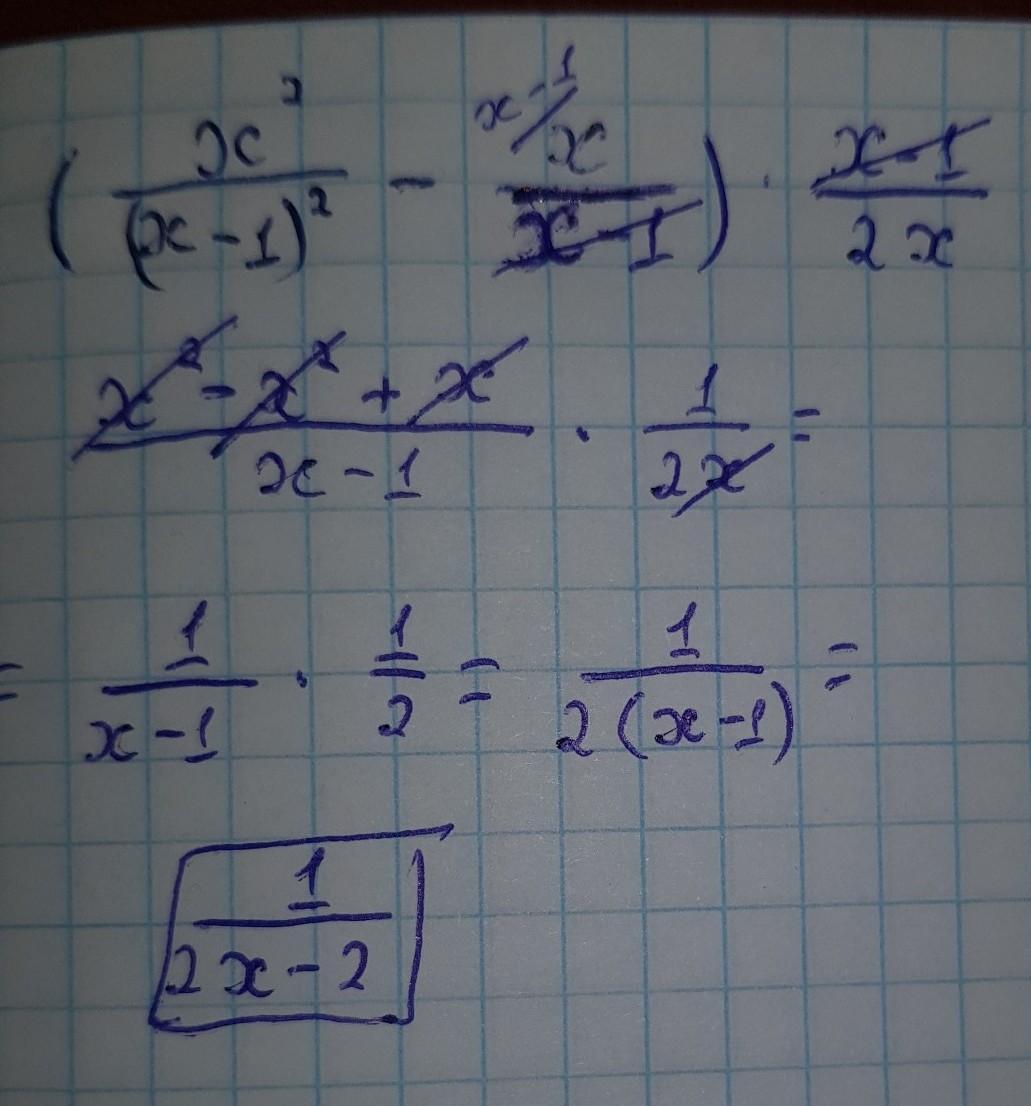 (x²/(x-1)² - x-1/ x/(x-1)) · (x-1)/(2x)
(x² - x² + x)/(x-1) · 1/(2x) =
= 1/(x-1) · 1/2 = 1/(2(x-1)) =
1/(2x-2)